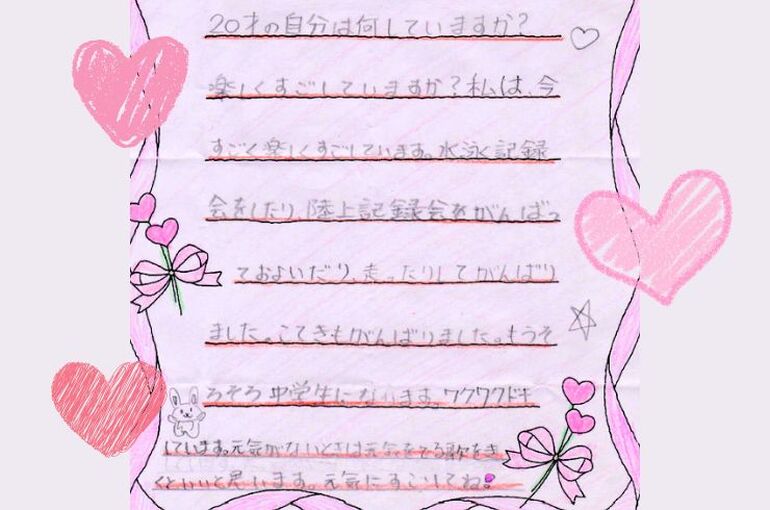 20才の自分は何していますか?
楽しくすごしていますか?私は、今
すごく楽しくすごしています。水泳記録
会をしたり、陸上記録会をがんばっ
ておよいだり、走ったりしてがんばり
ました。こてきもがんばりました。もうそ
ろそろ中学生になります。ワクワクドキ
しています。元気がないときは元気をでる歌をき
くといいと思います。元気にすごしてね